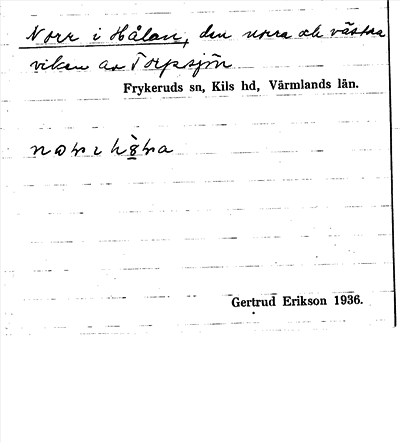 Norr i Hålan, den norra och västra
viken av Torpsjön
Frykeruds sn, Kils hd, Värmlands län.
Gertrud Erikson 1936.